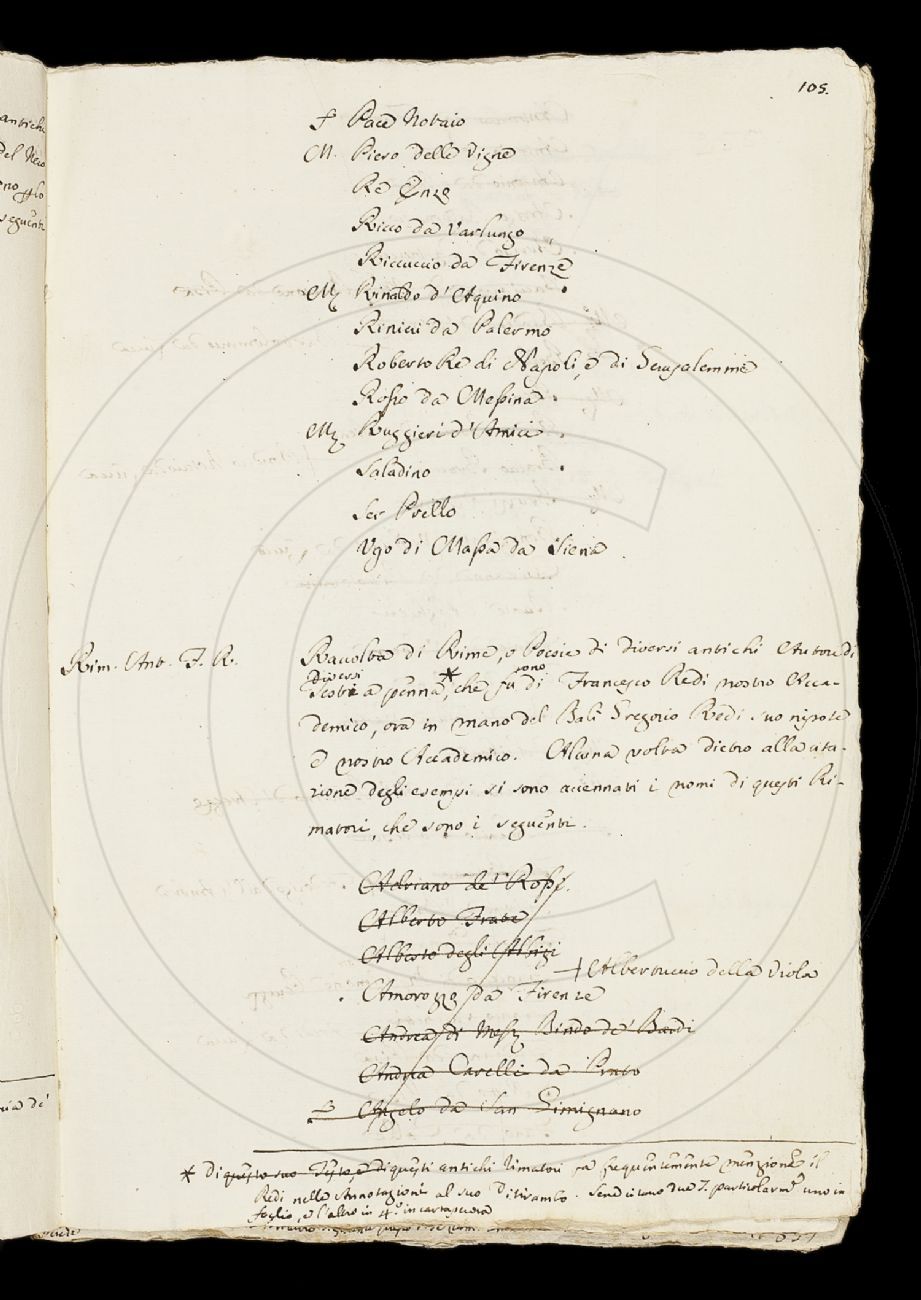 105.
Pace Notaio
M. Piero delle Vigne
Re Enzo
Ricco da Varlungo
Riccuccio da Firenze
Mz Rinaldo d'Aquino
Rinieri da Palermo
Roberto Re di Napoli, e di Gerusalemme
Rosso da Messina
Mz Ruggieri d'Amici
Saladino
Ser Prillo
Ugo di Massa da Siena
Rim. Ant. F. R.
Raccolta di Rime, o Poesie di diversi antichi Autori di
diversi
sono
Testi a penna *, che fu di Francesco Redi nostro Acca-
demico, ora in mano del Balì Gregorio Redi suo nipote
e nostro Accademico. Alcuna volta dietro alla cita-
zione degli esempi si sono accennati i nomi di questi Ri-
matori, che sono i seguenti.
Adriano de' Rossi.
Alberto Frate
Alberto degli Albizi
+ Albertuccio della Viola
Amorozzo da Firenze
Andrea di Mess. Bindo de' Bardi
Andrea Cavelli da Prato
Angelo da San Gimignano
* Di questo suo Testo, e di questi antichi rimatori fa frequentemente menzione il
Redi nelle Annotazioni al suo Ditirambo. Se ne citano due T. particolarm.e uno in
foglio, e l'altro in 4.o in cartapecora
antichi
del
seguenti